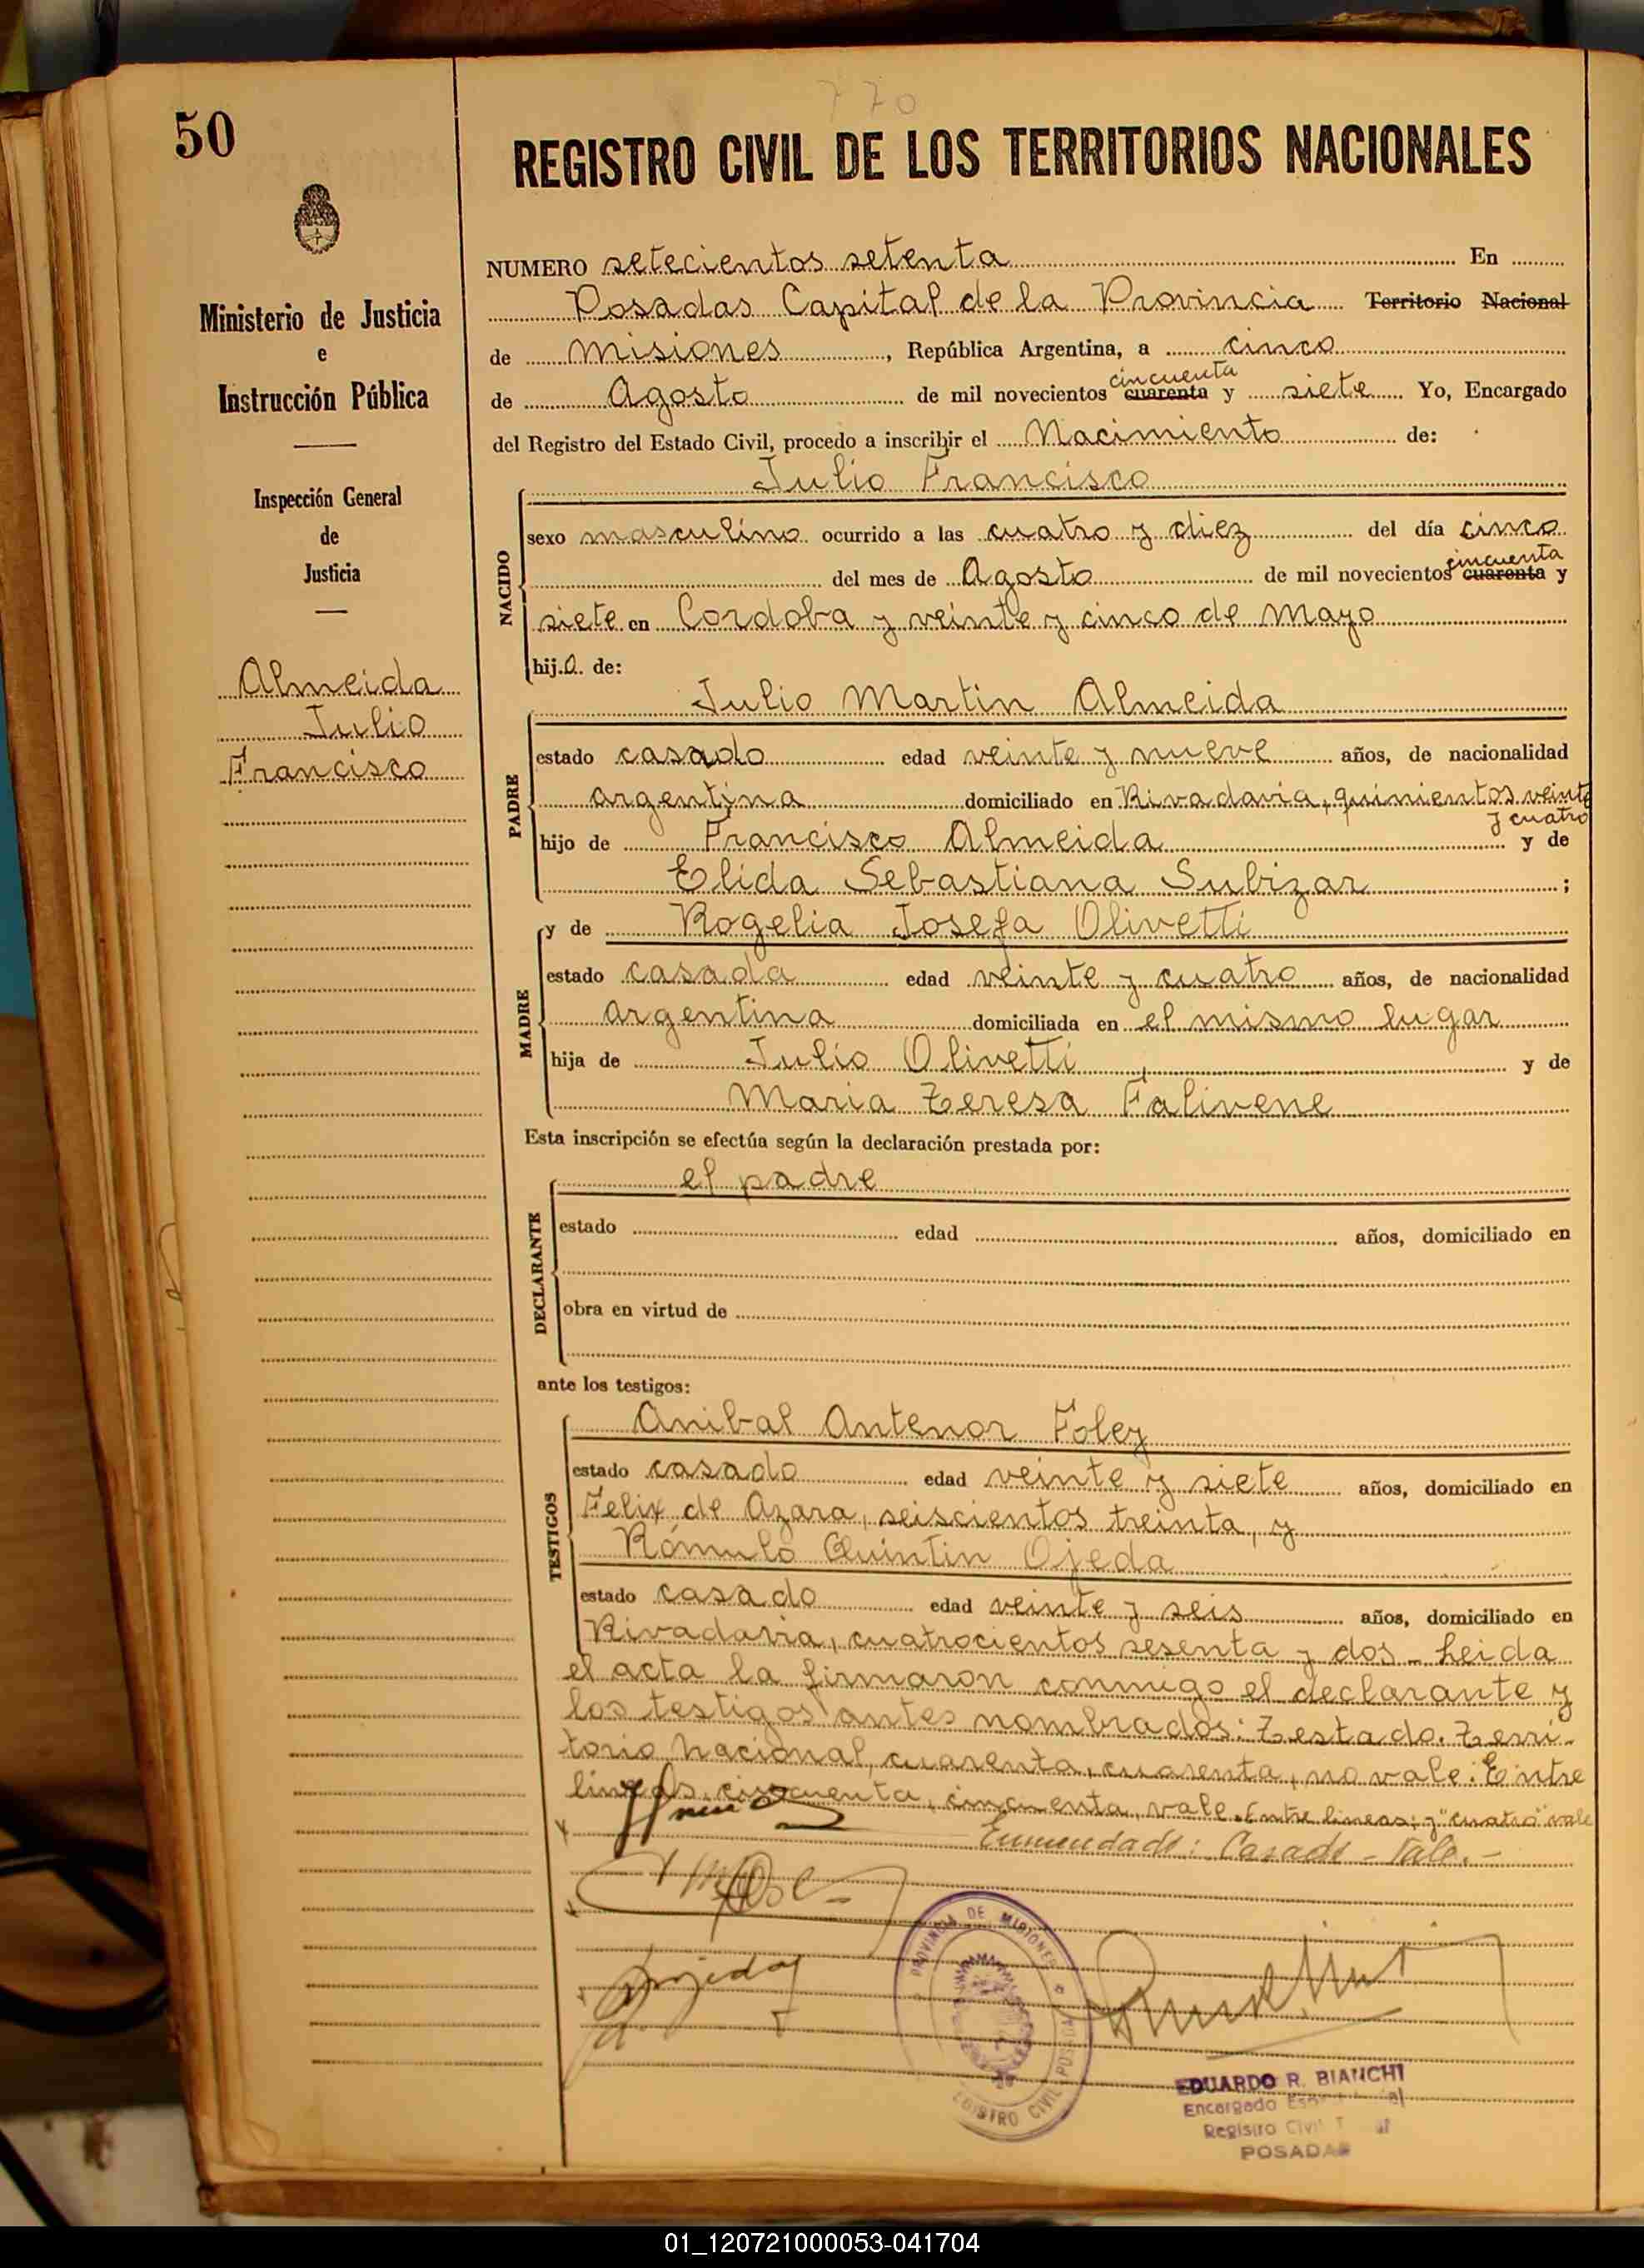 770
50
REGISTRO CIVIL DE LOS TERRITORIOS NACIONALES
Ministerio de Justicia
e
Instrucción Pública
Inspección General
de
Justicia
Almeida
Julio
Francisco
NUMERO setecientos setenta En
Posadas Capital de la Provincia Territorio Nacional
de Misiones, República Argentina, a cinco
cincuenta
de Agosto de mil novecientos cuarenta y siete Yo, Encargado
del Registro del Estado Civil, procedo a inscribir el Nacimiento de:
Julio Francisco
NACIDO
sexo masculino ocurrido a las cuatro y diez del día cinco
cincuenta
del mes de Agosto de mil novecientos cuarenta y
siete en Cordoba y veinte y cinco de Mayo
hij.o. de:
Julio Martin Almeida
PADRE
estado casado edad veinte y nueve años, de nacionalidad
argentina domiciliado en Rivadavia, quinientos veinte
y cuatro
hijo de Francisco Almeida y de
Elida Sebastiana Subizar;
y de Rogelia Josefa Olivetti
MADRE
estado casada edad veinte y cuatro años, de nacionalidad
argentina domiciliada en el mismo lugar
hija de Julio Olivetti y de
Maria Teresa Falivene
Esta inscripción se efectúa según la declaración prestada por:
el padre
DECLARANTE
estado edad años, domiciliado en
obra en virtud de
ante los testigos:
Anibal Antenor Foley
TESTIGOS
estado casado edad veinte y siete años, domiciliado en
Felix de Azara, seiscientos treinta, y
Rómulo Quintin Ojeda
estado casado edad veinte y seis años, domiciliado en
Rivadavia, cuatrocientos sesenta y dos - Leida
el acta la firmaron conmigo el declarante y
los testigos antes nombrados: Testado. Terri-
torio Nacional, cuarenta, cuarenta, no vale: Entre
lineas, cincuenta, cincuenta, vale. Entre lineas: y "cuatro" vale
Enmendado: Casado - Vale. -
PROVINCIA DE MISIONES
REGISTRO CIVIL POSADAS
EDUARDO R. BIANCHI
Encargado
Registro Civil
POSADAS
01_120721000053-041704